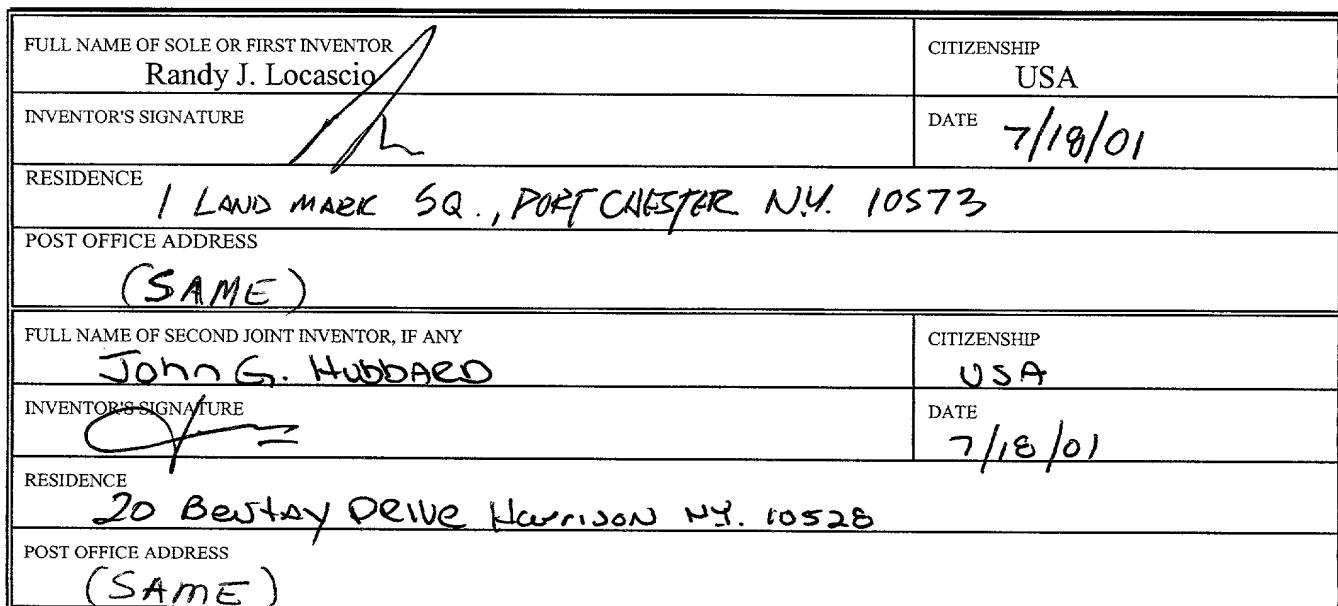 FULL NAME OF SOLE OR FIRST INVENTOR
Randy J. Locascio
CITIZENSHIP
USA
INVENTOR'S SIGNATURE
DATE 7/18/01
RESIDENCE
1 LAND MARK SQ., PORT CHESTER N.Y. 10573
POST OFFICE ADDRESS
(SAME)
FULL NAME OF SECOND JOINT INVENTOR, IF ANY
John G. HubbARD
CITIZENSHIP
USA
INVENTOR'S SIGNATURE
DATE
7/18/01
RESIDENCE
20 DRIVE Harrison NY. 10528
POST OFFICE ADDRESS
(SAME)